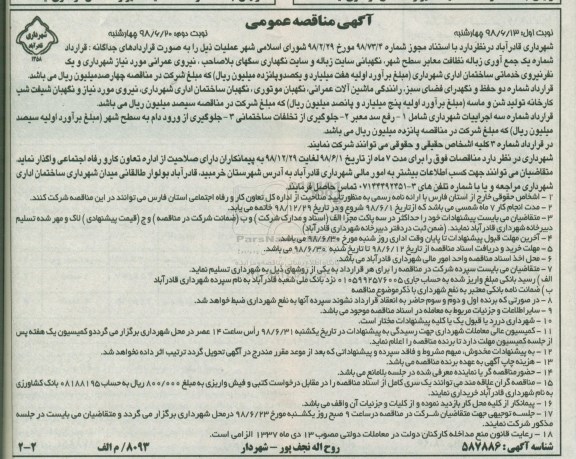 نوبت اول: ۹۸/۶/۱۳ چهارشنبه
آگهی مناقصه عمومی
نوبت دوم: ۹۸/۶/۲۰ چهارشنبه
شهرداری قادرآباد درنظردارد با استناد مجوز شماره ۹۸/۷۳/۴ مورخ ۹۸/۲/۲۹ شورای اسلامی شهر عملیات ذیل را به صورت قراردادهای جداگانه : قرارداد
شماره یک جمع آوری زباله نظافت معابر سطح شهر، نگهبانی سایت زباله و سایت نگهداری سگهای بلاصاحب ، نیروی عمرانی مورد نیاز شهرداری و یک
نفرنیروی خدماتی ساختمان اداری شهرداری (مبلغ برآورد اولیه هفت میلیارد و یکصدوپانزده میلیون ریال) که مبلغ شرکت در مناقصه چهارصدمیلیون ریال می باشد
قرارداد شماره دو حفظ و نگهداری فضای سبز، رانندگی ماشین آلات عمرانی، نگهبان موتوری، نگهبان ساختمان اداری شهرداری، نیروی مورد نیاز و نگهبان شیفت شب
کارخانه تولید شن و ماسه (مبلغ برآورد اولیه پنج میلیارد و پانصد میلیون ریال) که مبلغ شرکت در مناقصه سیصد میلیون ریال می باشد.
قرارداد شماره سه اجراییات شهرداری شامل ۱- رفع سد معبر ۲-جلوگیری از تخلفات ساختمانی ۳-جلوگیری از ورود دام به سطح شهر (مبلغ برآورد اولیه سیصد
میلیون ریال) که مبلغ شرکت در مناقصه پانزده میلیون ریال می باشد.
در قرارداد شماره ۳ کلیه اشخاص حقیقی و حقوقی می توانند شرکت نمایند.
شهرداری در نظر دارد مناقصات فوق را برای مدت ۷ ماه از تاریخ ۹۸/۶/۱ لغایت ۹۸/۱۲/۲۹ به پیمانکاران دارای صلاحیت از اداره تعاون کار و رفاه اجتماعی واگذار نماید
متقاضیان می توانند جهت کسب اطلاعات بیشتر به امور مالی شهرداری قادرآباد به آدرس شهرستان خرمبید، قادرآباد بولوار طالقانی میدان شهرداری ساختمان اداری
شهرداری مراجعه و یا با شماره تلفن های ۳-۰۷۱۴۴۴۹۲۴۵۱ تماس حاصل فرمایند
۱- اشخاص حقوقی خارج از استان فارس با ارائه نامه رسمی به منظور تایید صلاحیت از اداره کل تعاون و کار و رفاه اجتماعی استان فارس می توانند در این مناقصه شرکت کنند.
۲- مدت انجام کار ۷ ماه شمسی می باشد که از تاریخ ۹۸/۶/۱ شروع و در تاریخ ۹۸/۱۲/۲۹ خاتمه می یابد.
۳- متقاضیان می بایست پیشنهادات خود را حداکثر در سه پاکت مجزا الف (اسناد و مدارک شرکت) و ب (ضمانت شرکت در مناقصه) و ج (قیمت پیشنهادی) لاک و مهر شده تسلیم
دبیرخانه شهرداری قادرآباد نمایند. (ضمن ثبت در دفتر دبیرخانه شهرداری قادرآباد)
۴- آخرین مهلت قبول پیشنهادات تا پایان وقت اداری روز شنبه مورخ ۹۸/۶/۳۰ می باشد.
۵- مهلت خرید و دریافت اسناد مناقصه از تاریخ ۹۸/۶/۱۲ تا تاریخ شنبه ۹۸/۶/۳۰ می باشد.
۶- محل اخذ اسناد مناقصه واحد امور مالی شهرداری قادرآباد می باشد.
۷- متقاضیان می بایست سپرده شرکت در مناقصه را برای هر قرارداد به یکی از روشهای ذیل به شهرداری تسلیم نماید.
الف) رسید بانکی مبلغ واریز شده به حساب جاری ۰۱۰۵۹۹۲۵۷۶۰۰۵ نزد بانک ملی شعبه قادرآباد به نام سپرده شهرداری قادرآباد
ب) ضمانت نامه بانکی معتبر به نفع شهرداری با ذکر موضوع مناقصه
۸- در صورتی که برنده اول و دوم و سوم حاضر به انعقاد قرارداد نشوند سپرده آنها به نفع شهرداری ضبط خواهد شد.
۹- سایر اطلاعات و جزئیات مربوط به معامله در اسناد مناقصه موجود می باشد.
۱۰- شهرداری در رد یا قبول یک یا کلیه پیشنهادات مختار است.
۱۱- کمیسیون عالی معاملات شهرداری جهت رسیدگی به پیشنهادات در تاریخ یکشنبه ۹۸/۶/۳۱ رأس ساعت ۱۴ عصر در محل شهرداری برگزار می گردد و کمیسیون یک هفته پس
از جلسه کمیسیون مهلت دارد تا برنده مناقصه را اعلام نماید.
۱۲- به پیشنهادات مخدوش، مبهم مشروط و فاقد سپرده و پیشنهاداتی که بعد از موعد مقرر مندرج در آگهی تحویل گردد ترتیب اثر داده نخواهد شد.
۱۳- هزینه چاپ آگهی به عهده برنده مناقصه می باشد.
۱۴- حضور مناقصه گر یا نماینده معرفی شده در جلسه بلامانع می باشد.
۱۵- مناقصه گران علاقه مند می توانند یک سری کامل از اسناد مناقصه را در مقابل درخواست کتبی و فیش واریزی به مبلغ ۸۰۰/۰۰۰ ریال به حساب ۰۸۱۸۸۱۹۵ بانک کشاورزی
به نام شهرداری قادرآباد خریداری نمایند.
۱۶- پیمانکار از کلیه محل کار بازدید نموده و از کلیات و جزئیات آن واقف می باشد.
۱۷- جلسه توجیهی جهت متقاضیان شرکت در مناقصه در ساعت ۹ صبح روز یکشنبه مورخ ۹۸/۶/۲۳ در محل شهرداری برگزار می گردد و متقاضیان می بایست در جلسه
مذکور شرکت نمایند.
۱۸- رعایت قانون منع مداخله کارکنان دولت در معاملات دولتی مصوب ۱۳ دی ماه ۱۳۳۷ الزامی است.
شناسه آگهی: ۵۸۷۸۸۶
روح اله نجف پور - شهردار
۸۰۹۳/ م الف
۲-۲